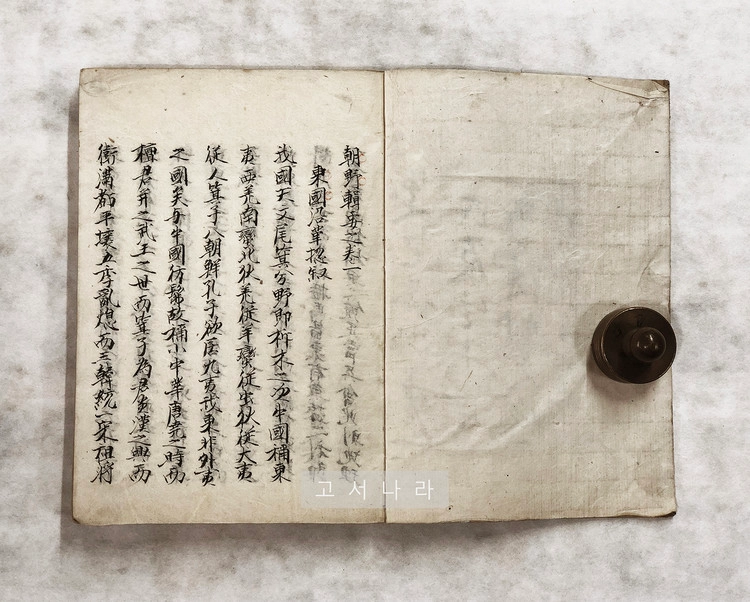 朝野輯要之卷一
東國沿革揔叙
我國天文尾箕分野即析木之次中國稱東
夷西羌南蠻北狄羌從羊蠻從虫狄從犬夷
從人箕子入朝鮮孔子欲居九夷我東非外夷
之國矣与中國彷髴故稱小中華唐堯之時而
檀君并之武王之世而箕子為君炎漢之興而
衛滿都平壤五季亂熄而三韓統一宋祖將
고서나라